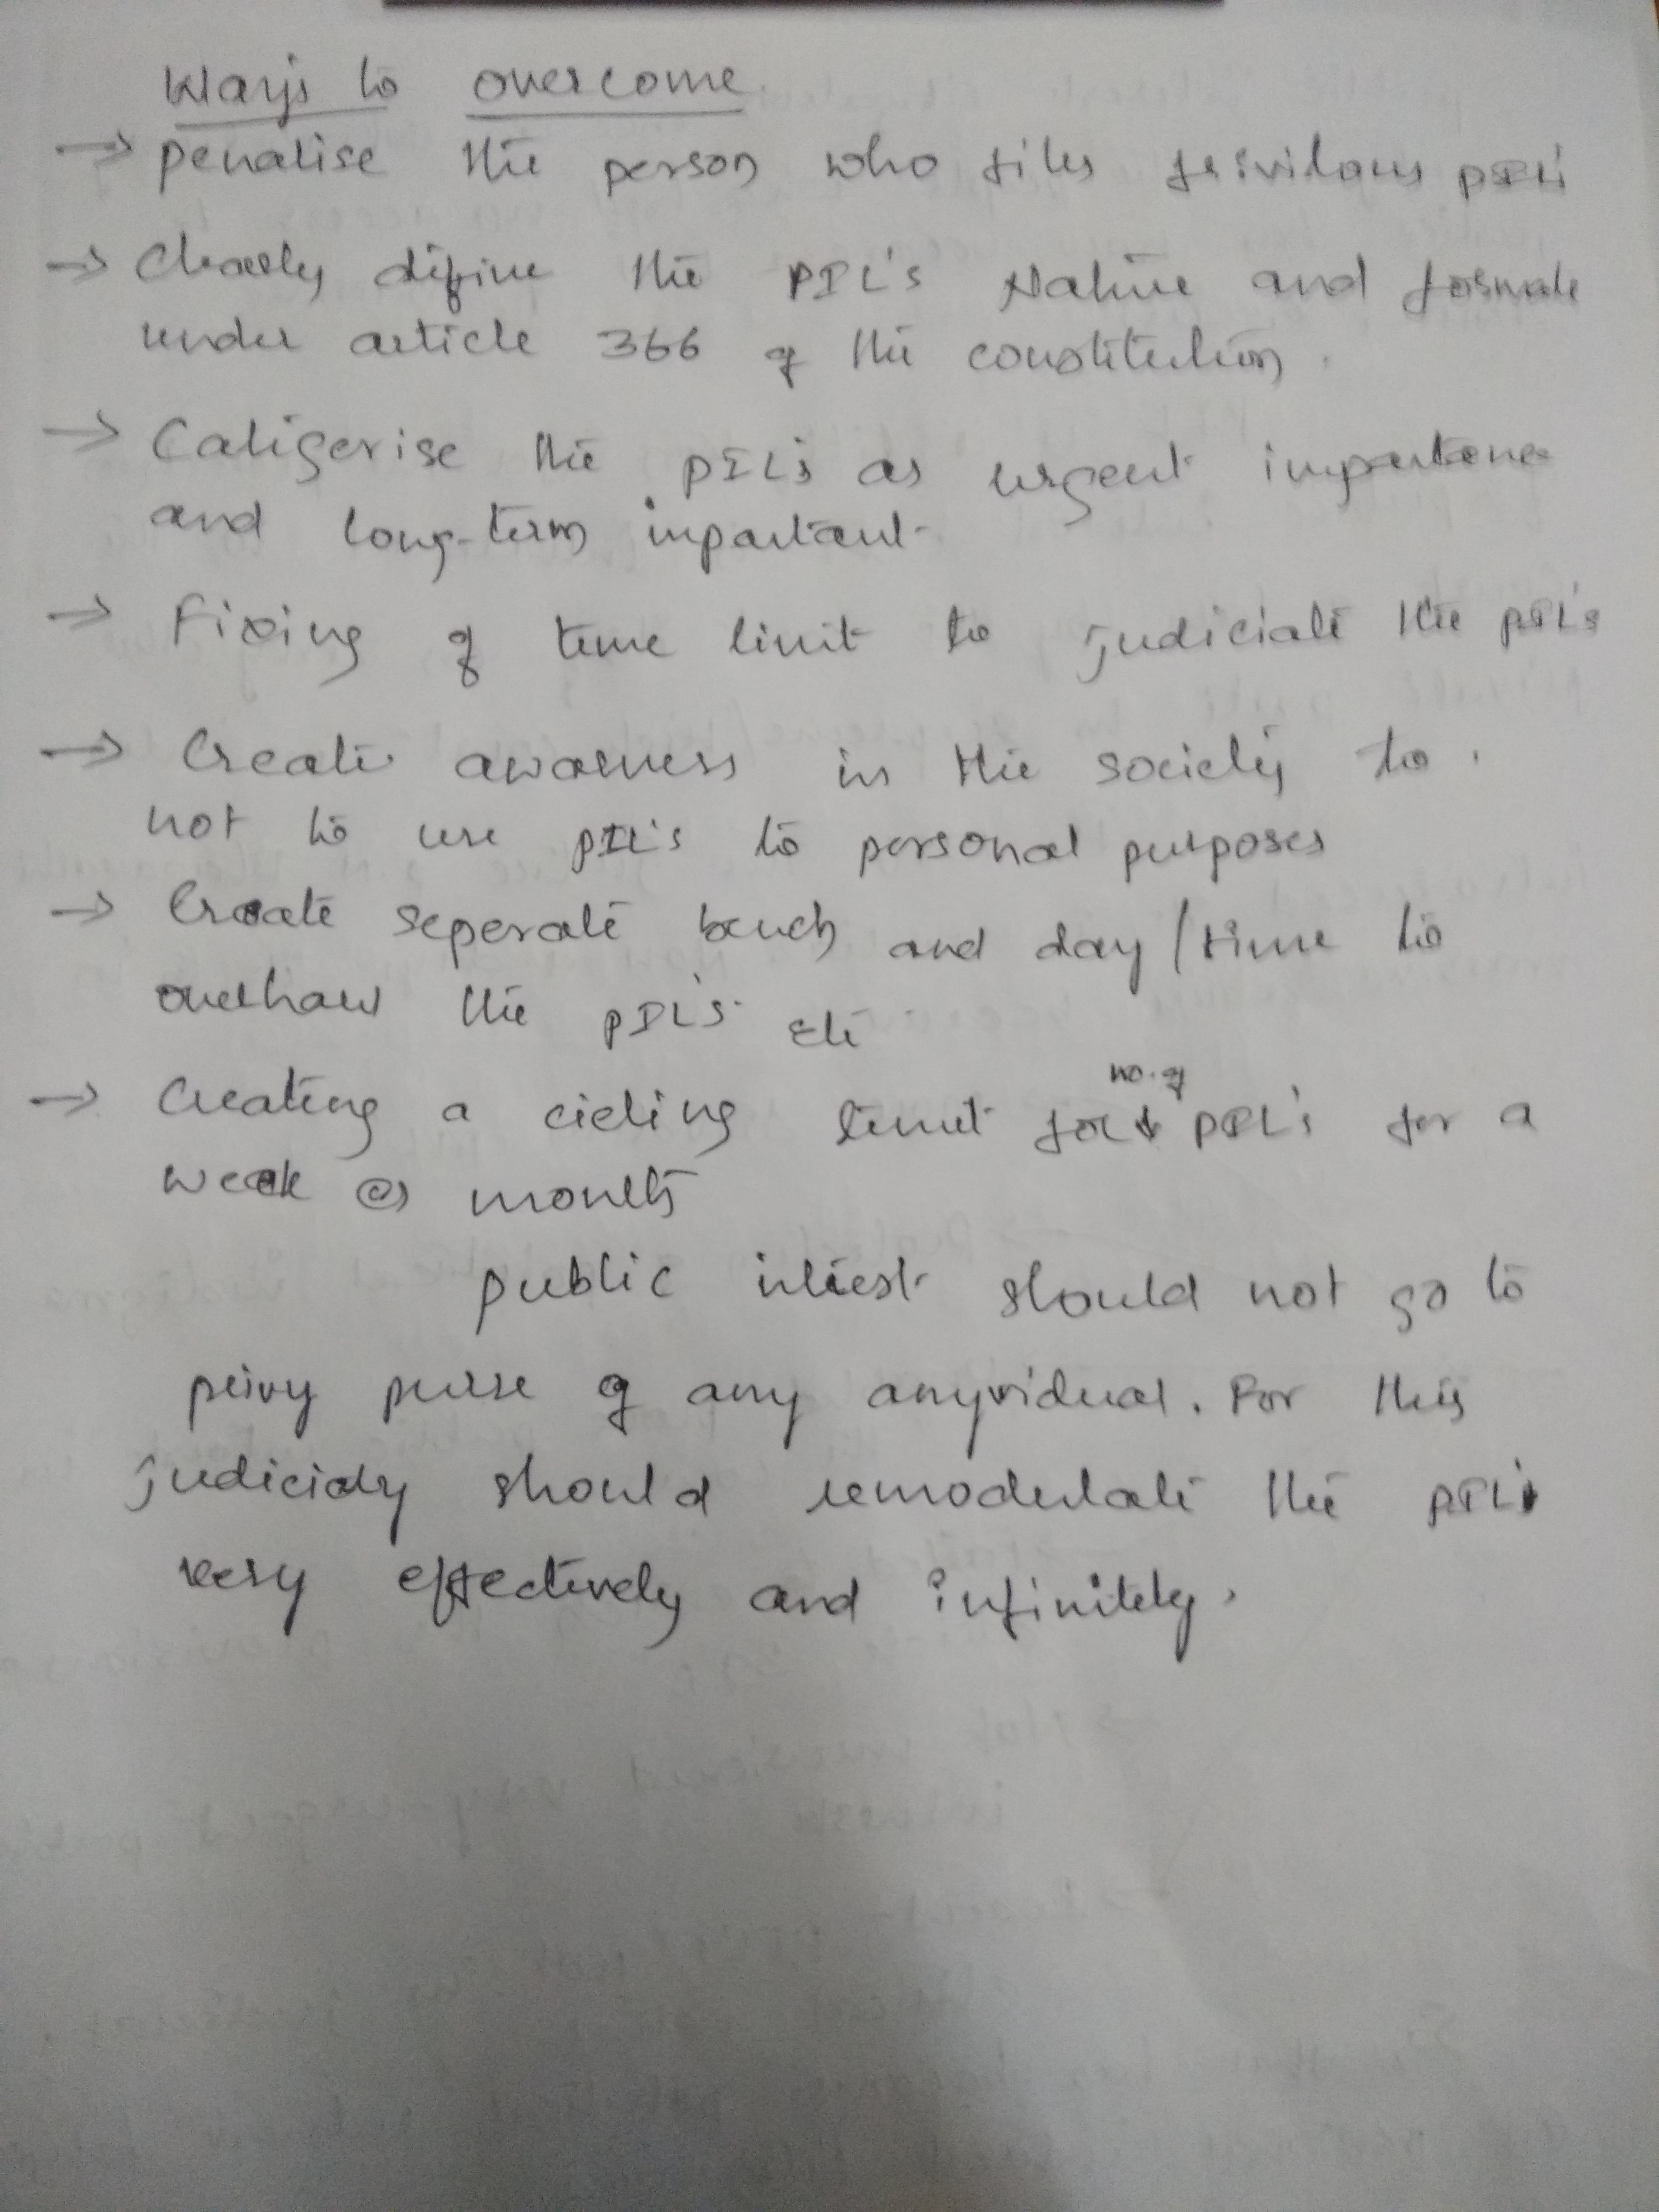 Ways to overcome
→ penalise the person who files frivilous PIL's
→ Clearly define the PIL's Nature and formate
under article 366 of the constitution.
→ Catigerise the PIL's as urgent importance
and long-term inportant
→ Fixing of time limit to judiciate the PIL's
→ Create awarness in the society to
not to use PIL's to personal purposes
→ Create seperate bench and day/time to
overhaul the PIL's etc
→ Creating a cieling limit for no. of PIL's for a
week or month
public intrest should not go to
privy purse of any anyvidual. For this
judiciary should remodulate the PIL's
very effectively and infinitely.